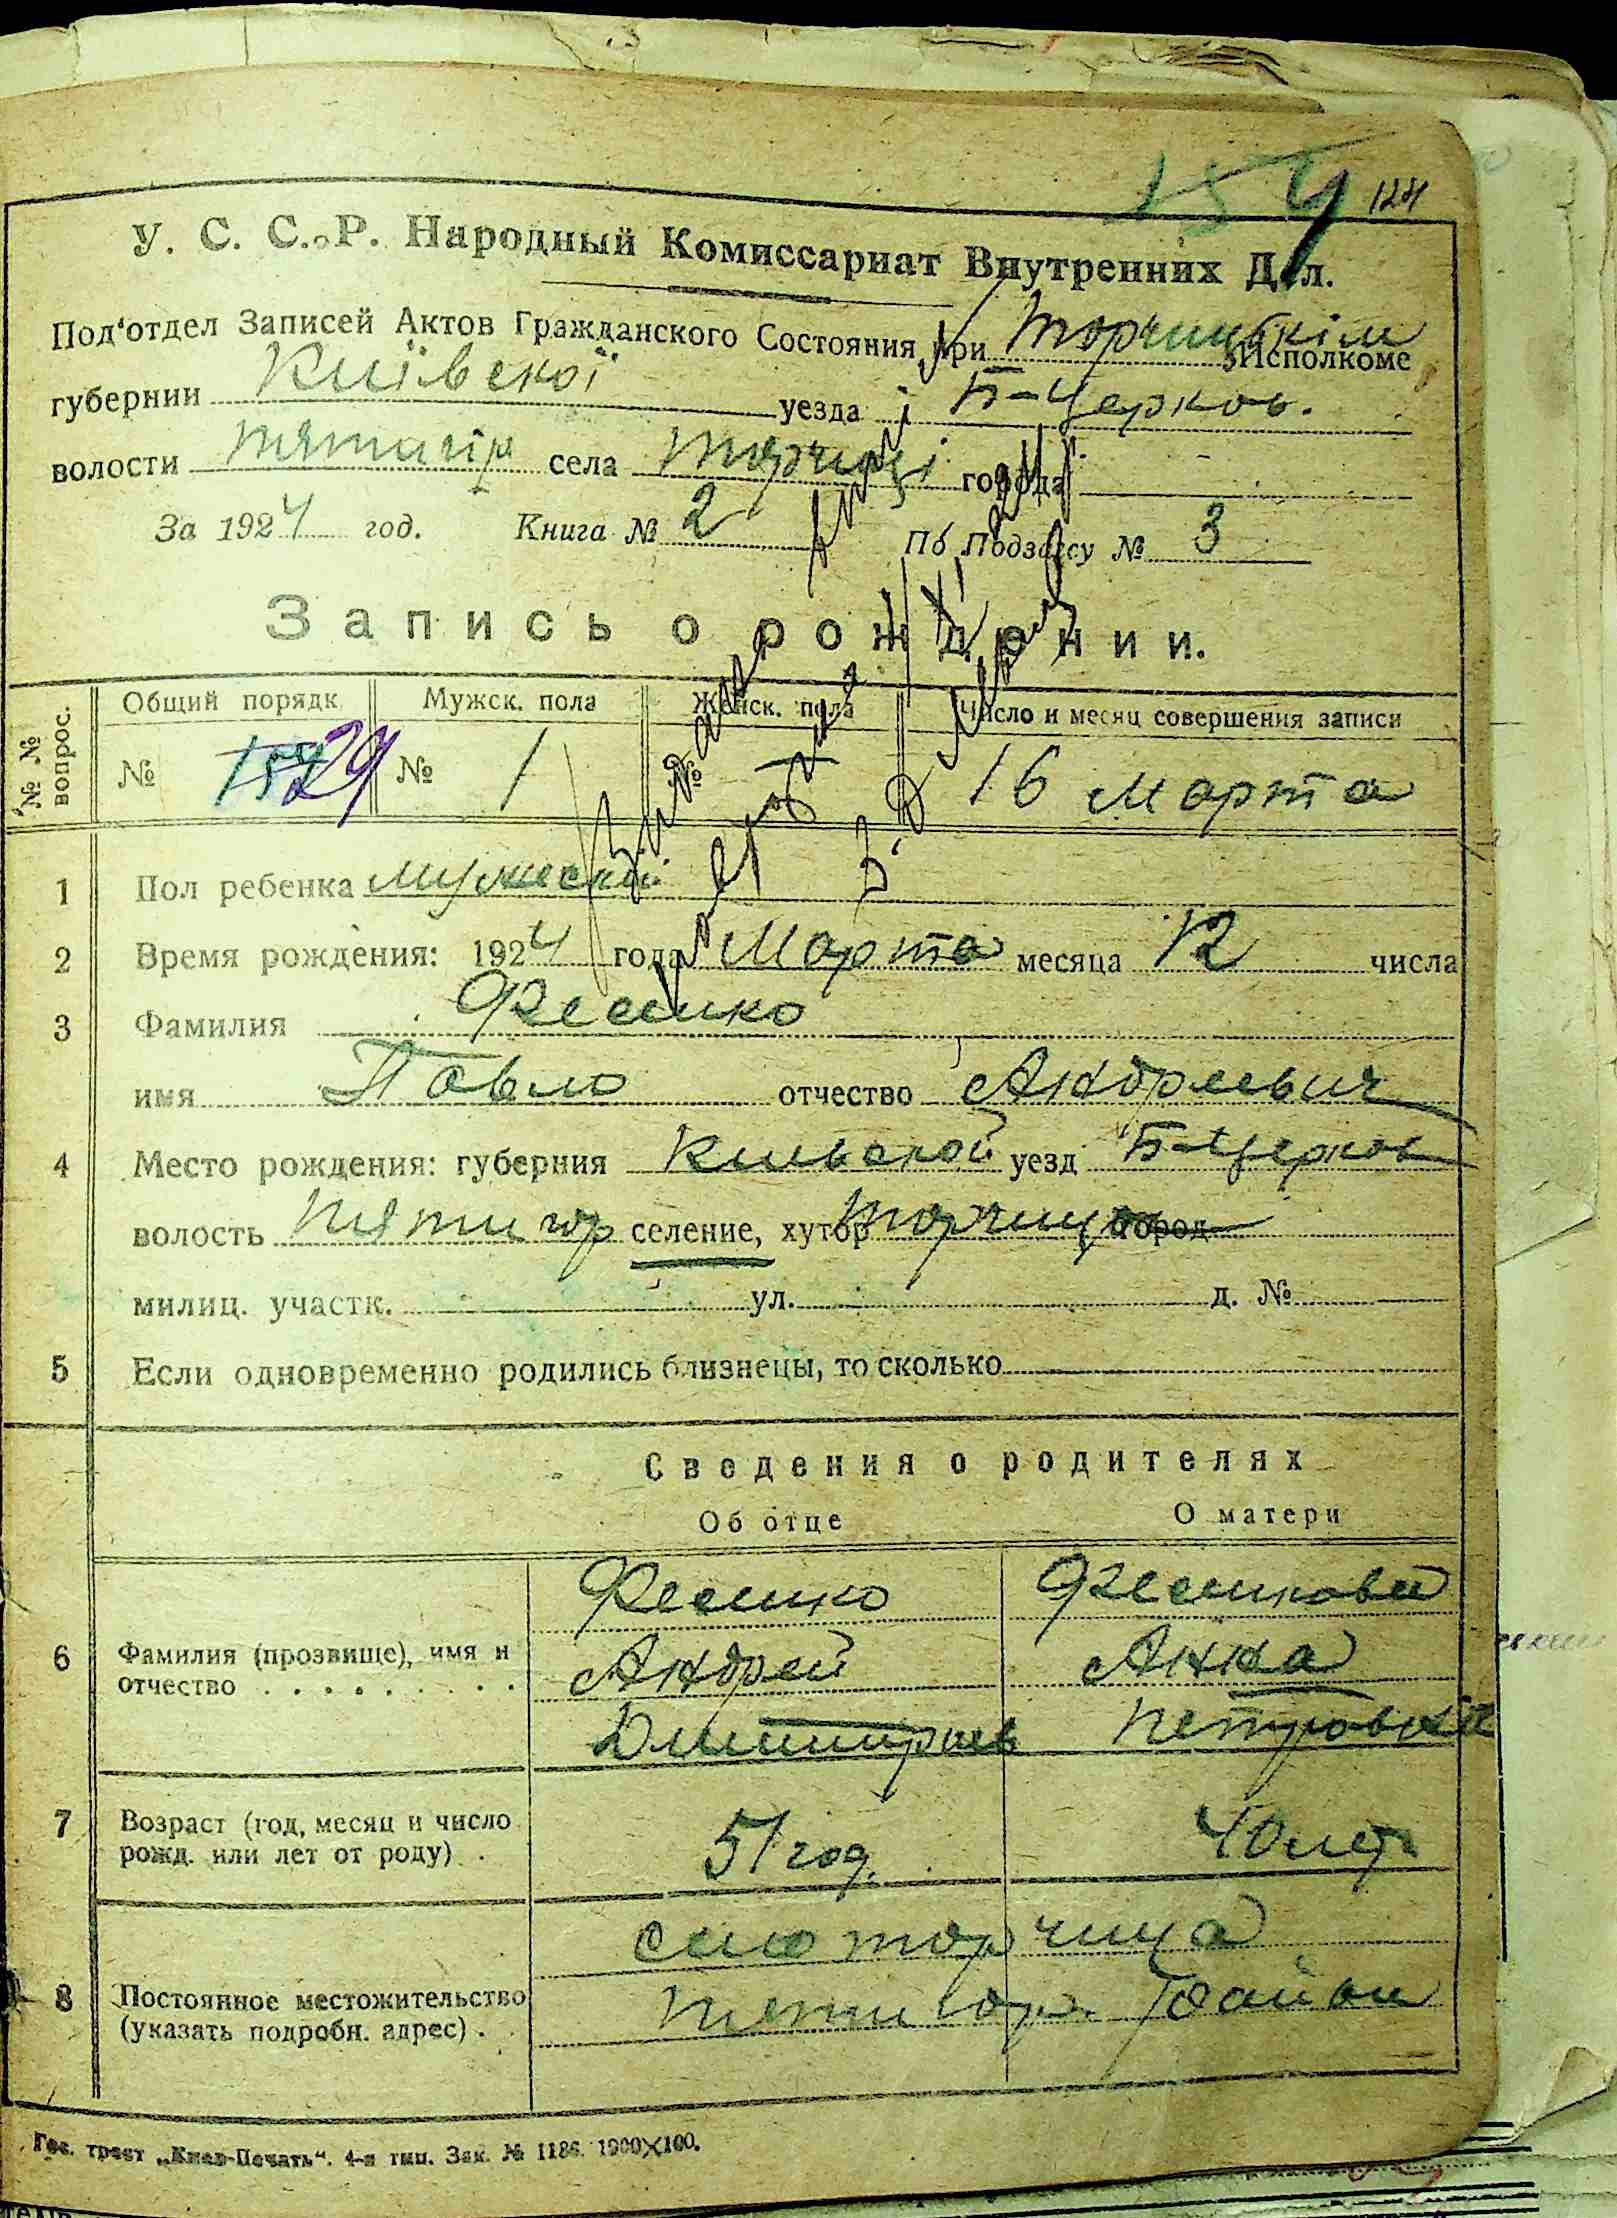 154 124
У. С. С. Р. Народный Комиссариат Внутренних Дел.
Под'отдел Записей Актов Гражданского Состояния при Торчицькім Исполкоме
губернии Київской уезда Б-Церков.
волости Пятигір села Торчиці города
За 1924 год. Книга № 2 По Подзагсу № 3
Запись о рождении.
№ № вопрос. Общий порядк Мужск. пола Женск. пола Число и месяц совершения записи
№ 29 № 1 № — 16 Марта
1 Пол ребенка мужеской
2 Время рождения: 1924 года Марта месяца 12 числа
3 Фамилия Фесенко
имя Павло отчество Андреевич
4 Место рождения: губерния Киевской уезд Б-Церков
волость Пятигор селение, хутор Торчица город
милиц. участк. ул. д. №
5 Если одновременно родились близнецы, то сколько
Сведения о родителях
Об отце О матери
6 Фамилия (прозвище), имя и отчество
Фесенко
Андрей
Дмитриев
Анна
Петровна
7 Возраст (год, месяц и число рожд. или лет от роду) 51 год. 40 лет
8 Постоянное местожительство (указать подробн. адрес)
село Торчица
Пятигор. Район
Гос. трест „Киев-Печать“. 4-я тип. Зак. № 1186. 1900×100.